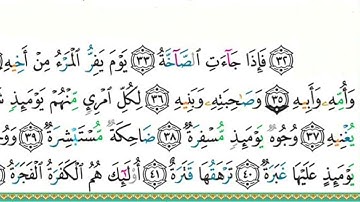 ٣٢ فَإِذَا جَآءَتِ ٱلصَّآخَّةُ ٣٣ يَوْمَ يَفِرُّ ٱلْمَرْءُ مِنْ أَخِيهِ
وَأُمِّهِۦ وَأَبِيهِ ٣٥ وَصَٰحِبَتِهِۦ وَبَنِيهِ ٣٦ لِكُلِّ ٱمْرِئٍ مِّنْهُمْ يَوْمَئِذٍ
يُغْنِيهِ ٣٧ وُجُوهٌ يَوْمَئِذٍ مُّسْفِرَةٌ ٣٨ ضَاحِكَةٌ مُّسْتَبْشِرَةٌ ٣٩
يَوْمَئِذٍ عَلَيْهَا غَبَرَةٌ ٤٠ تَرْهَقُهَا قَتَرَةٌ ٤١ أُو۟لَٰٓئِكَ هُمُ ٱلْكَفَرَةُ ٱلْفَجَرَةُ